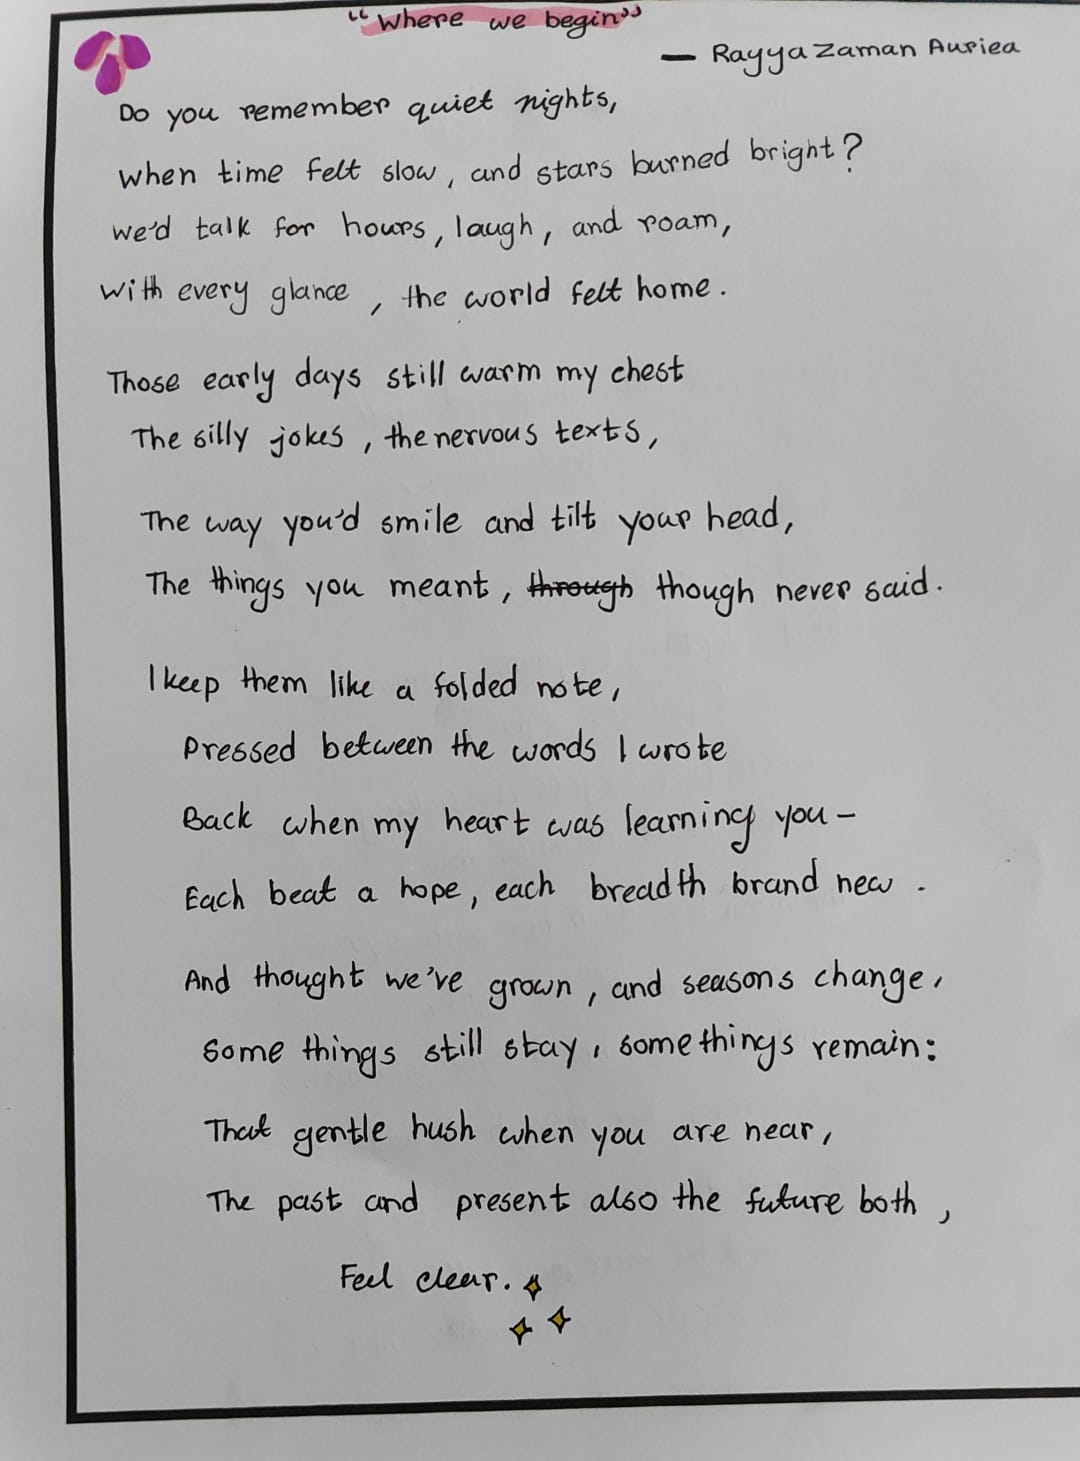 "Where we begin"
— Rayya Zaman Auriea
Do you remember quiet nights,
when time felt slow, and stars burned bright?
we'd talk for hours, laugh, and roam,
with every glance, the world felt home.
Those early days still warm my chest
The silly jokes, the nervous texts,
The way you'd smile and tilt your head,
The things you meant, through though never said.
I keep them like a folded note,
Pressed between the words I wrote
Back when my heart was learning you-
Each beat a hope, each breadth brand new.
And thought we've grown, and seasons change,
Some things still stay, some things remain:
That gentle hush when you are near,
The past and present also the future both,
Feel clear.